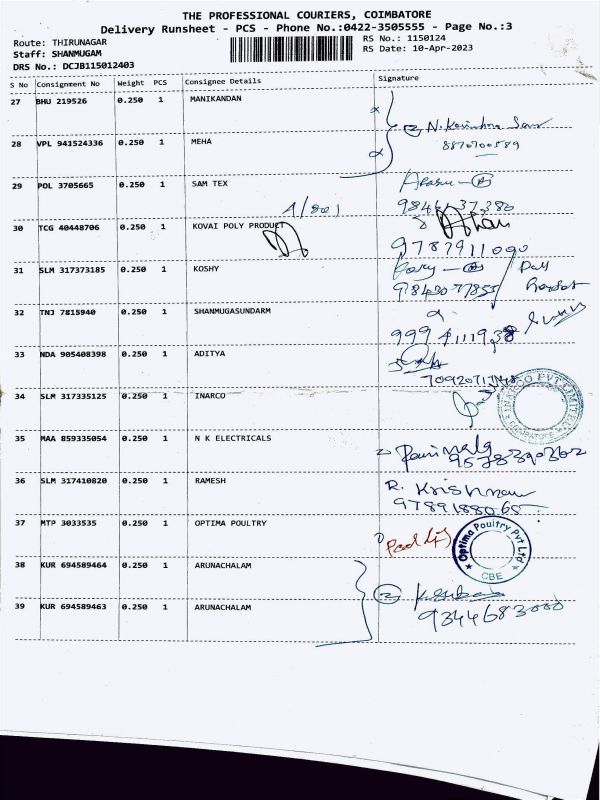 THE PROFESSIONAL COURIERS, COIMBATORE
Delivery Runsheet - PCS - Phone No.:0422-3505555 - Page No.:3
Route: THIRUNAGAR
RS No.: 1150124
Staff: SHANMUGAM
RS Date: 10-Apr-2023
DRS No.: DCJB115012403
S No Consignment No Weight PCS Consignee Details Signature
27 BHU 219526 0.250 1 MANIKANDAN
28 VPL 941524336 0.250 1 MEHA
29 POL 3705665 0.250 1 SAM TEX
30 TCG 40448706 0.250 1 KOVAI POLY PRODUCT
9787911090
31 SLM 317373185 0.250 1 KOSHY
9843077855
32 TNJ 7815940 0.250 1 SHANMUGASUNDARM
9994111938
33 NDA 905408398 0.250 1 ADITYA
34 SLM 317335125 0.250 1 INARCO
35 MAA 859335054 0.250 1 N K ELECTRICALS
36 SLM 317410820 0.250 1 RAMESH
R. Krishnan
9789188065
37 MTP 3033535 0.250 1 OPTIMA POULTRY
Optima Poultry Pvt Ltd
CBE
38 KUR 694589464 0.250 1 ARUNACHALAM
39 KUR 694589463 0.250 1 ARUNACHALAM
9344683000